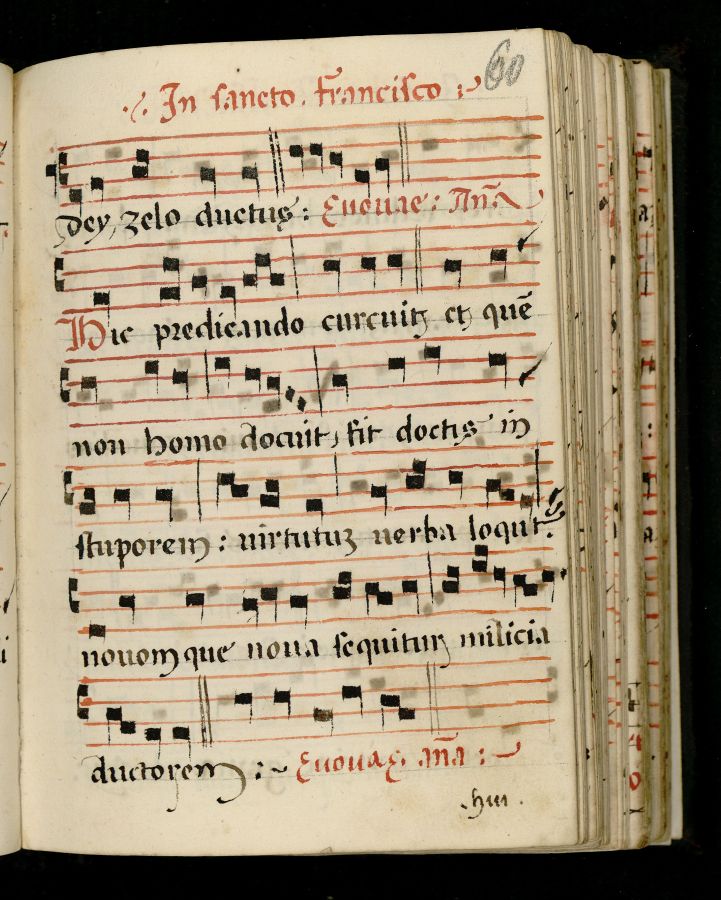 60
In sancto. francisco :
dey, zelo ductus : Euouae : Anã
Hic predicando circuit et quẽ
non homo docuit, fit doctis in
stuporem : uirtutuz uerba loquit.
nouomque noua sequitur milicia
ductorem : Euouae. anã :
hui.